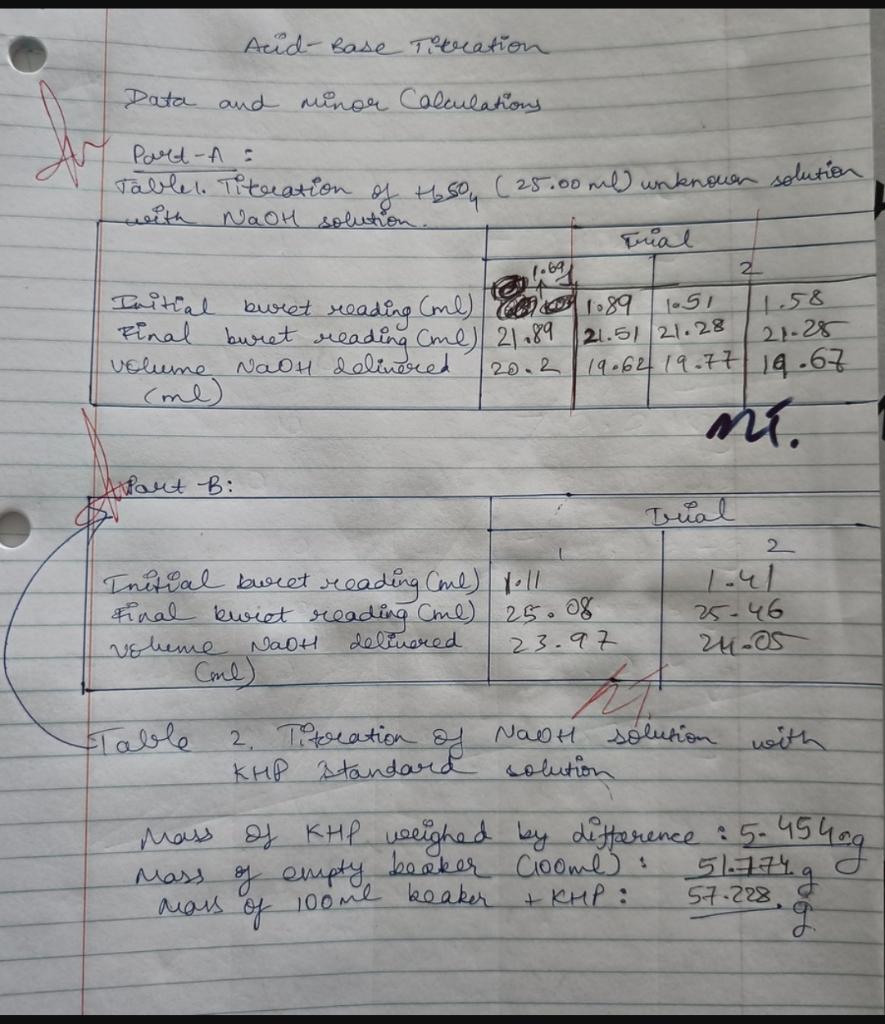 Acid-Base Titration
Data and minor Calculations
Part-A :
Table1. Titration of H₂SO₄ (25.00 ml) unknown solution
with NaOH solution.
Trial
1.69
2
Initial buret reading (ml) 1.89 1.51 1.58
Final buret reading (ml) 21.89 21.51 21.28 21.25
Volume NaOH delivered 20.2 19.62 19.77 19.67
(ml)
MT.
Part B:
Trial
1 2
Initial buret reading (ml) 1.11 1.41
Final buret reading (ml) 25.08 25.46
Volume NaOH delivered 23.97 24.05
(ml)
MT.
Table 2. Titration of NaOH solution with
KHP standard solution
Mass of KHP weighed by difference : 5.454 g
Mass of empty beaker (100ml) : 51.774 g
Mass of 100ml beaker + KHP : 57.228 g